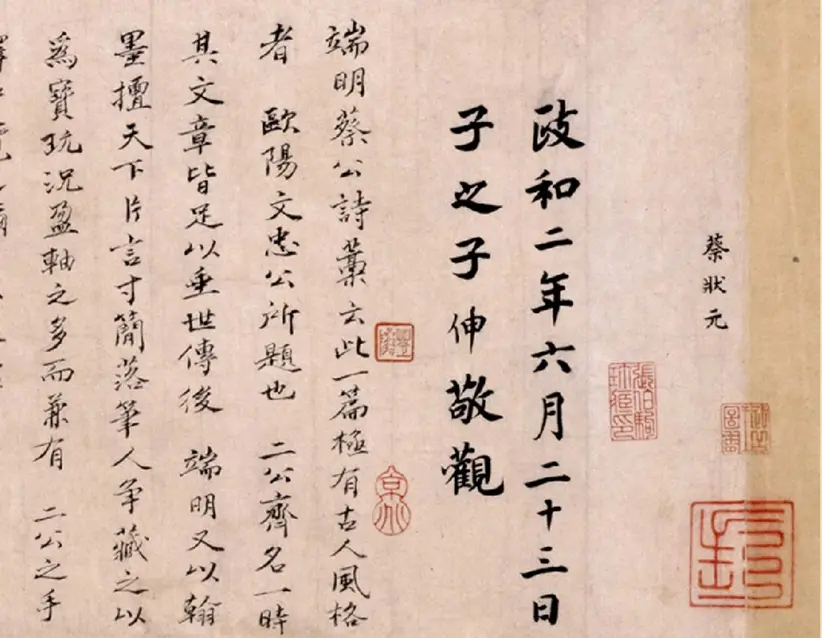 蔡狀元
政和二年六月二十三日
子之子伸敬觀
端明蔡公詩藁云此一篇極有古人風格
者 歐陽文忠公所題也 二公齊名一時
其文章皆足以垂世傳後 端明又以翰
墨擅天下片言寸簡落筆人爭藏之以
為寶玩況盈軸之多而兼有 二公之手
張伯駒珍藏印